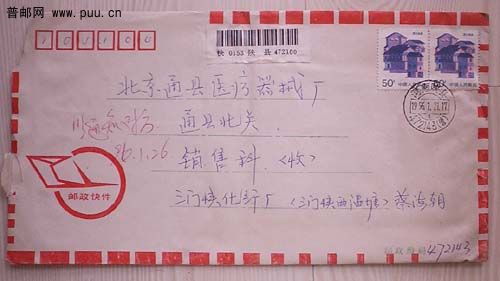 普邮网
www.puu.cn
101100
快 0153 陕 县 472100
50分 中国人民邮政
50分 中国人民邮政
北京通县医疗器械厂
通县北关
96.1.26
销售科（收）
邮政快件
三门峡化纤厂（三门峡西温塘）蔡海朝
邮政编码 472143